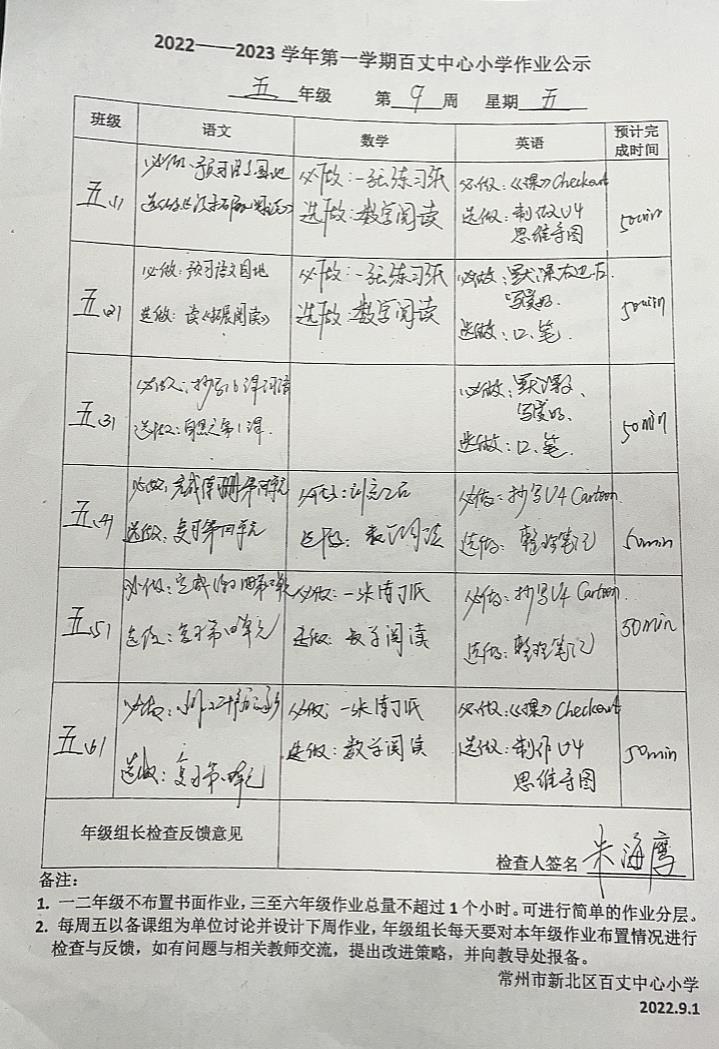 2022——2023 学年第一学期百丈中心小学作业公示
五 年级 第 9 周 星期 五
班级 语文 数学 英语 预计完成时间
五(1)
必做:预习语文园地 必做:一张练习纸 必做:《课》Checkout
选做: 选做:数学阅读 选做:制作U4
思维导图
50min
五(2)
必做:预习语文园地 必做:一张练习纸 必做:默课右边后
选做:读《拓展阅读》 选做:数学阅读 选做:口、笔
50min
五(3)
必做:抄写16课词语 必做:
选做:自默第1课 选做:口、笔
50min
五(4)
必做:完成 第四单元 必做: 必做:抄写U4 Cartoon
选做:复习第四单元 选做:数学阅读 选做:整理笔记
50min
五(5)
必做:完成 必做:一张练习纸 必做:抄写U4 Cartoon
选做:复习第四单元 选做:数学阅读 选做:整理笔记
50min
五(6)
必做: 必做:一张练习纸 必做:《课》Checkout
选做:复习第四单元 选做:数学阅读 选做:制作U4
思维导图
50min
年级组长检查反馈意见
检查人签名 朱海鹰
备注:
1. 一二年级不布置书面作业,三至六年级作业总量不超过 1 个小时。可进行简单的作业分层。
2. 每周五以备课组为单位讨论并设计下周作业,年级组长每天要对本年级作业布置情况进行
检查与反馈,如有问题与相关教师交流,提出改进策略,并向教导处报备。
常州市新北区百丈中心小学
2022.9.1